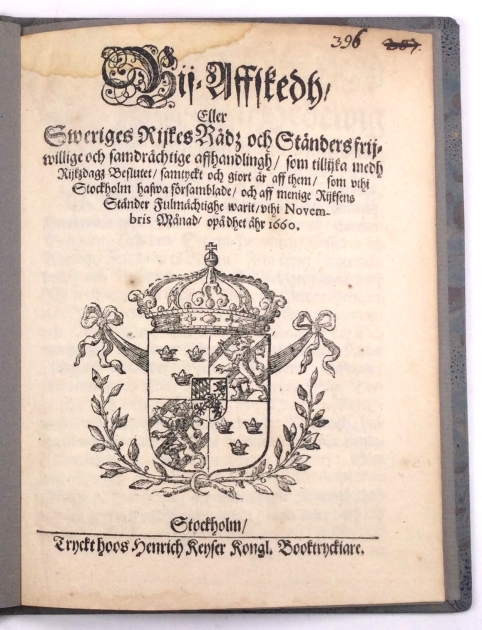 396 207.
Bij-Affskedh/
Eller
Sweriges Rijkes Rådz och Ständers frij-
willige och samdrächtige affhandlingh/ som tillijka medh
Rijkzdagz Beslutet/ samtyckt och giort är aff them/ som vthi
Stockholm hafwa församblade/ och aff menige Rijksens
Ständer Fulmächtighe warit/ vthi Novem-
bris Månad/ opå dhet åhr 1660.
Stockholm/
Tryckt hoos Henrich Keyser Kongl. Booktryckiare.